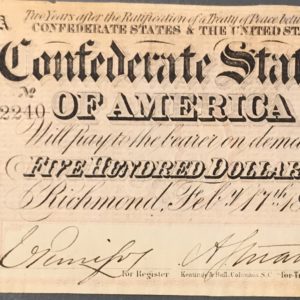 Two Years after the Ratification of a Treaty of Peace betw
CONFEDERATE STATES & THE UNITED STA
Confederate Stat
No
2240 OF AMERICA
Will pay to the bearer on dema
FIVE HUNDRED DOLLAR
Richmond, Feby 17th 18
for Register Keatinge & Ball, Columbia, S.C. for Tr